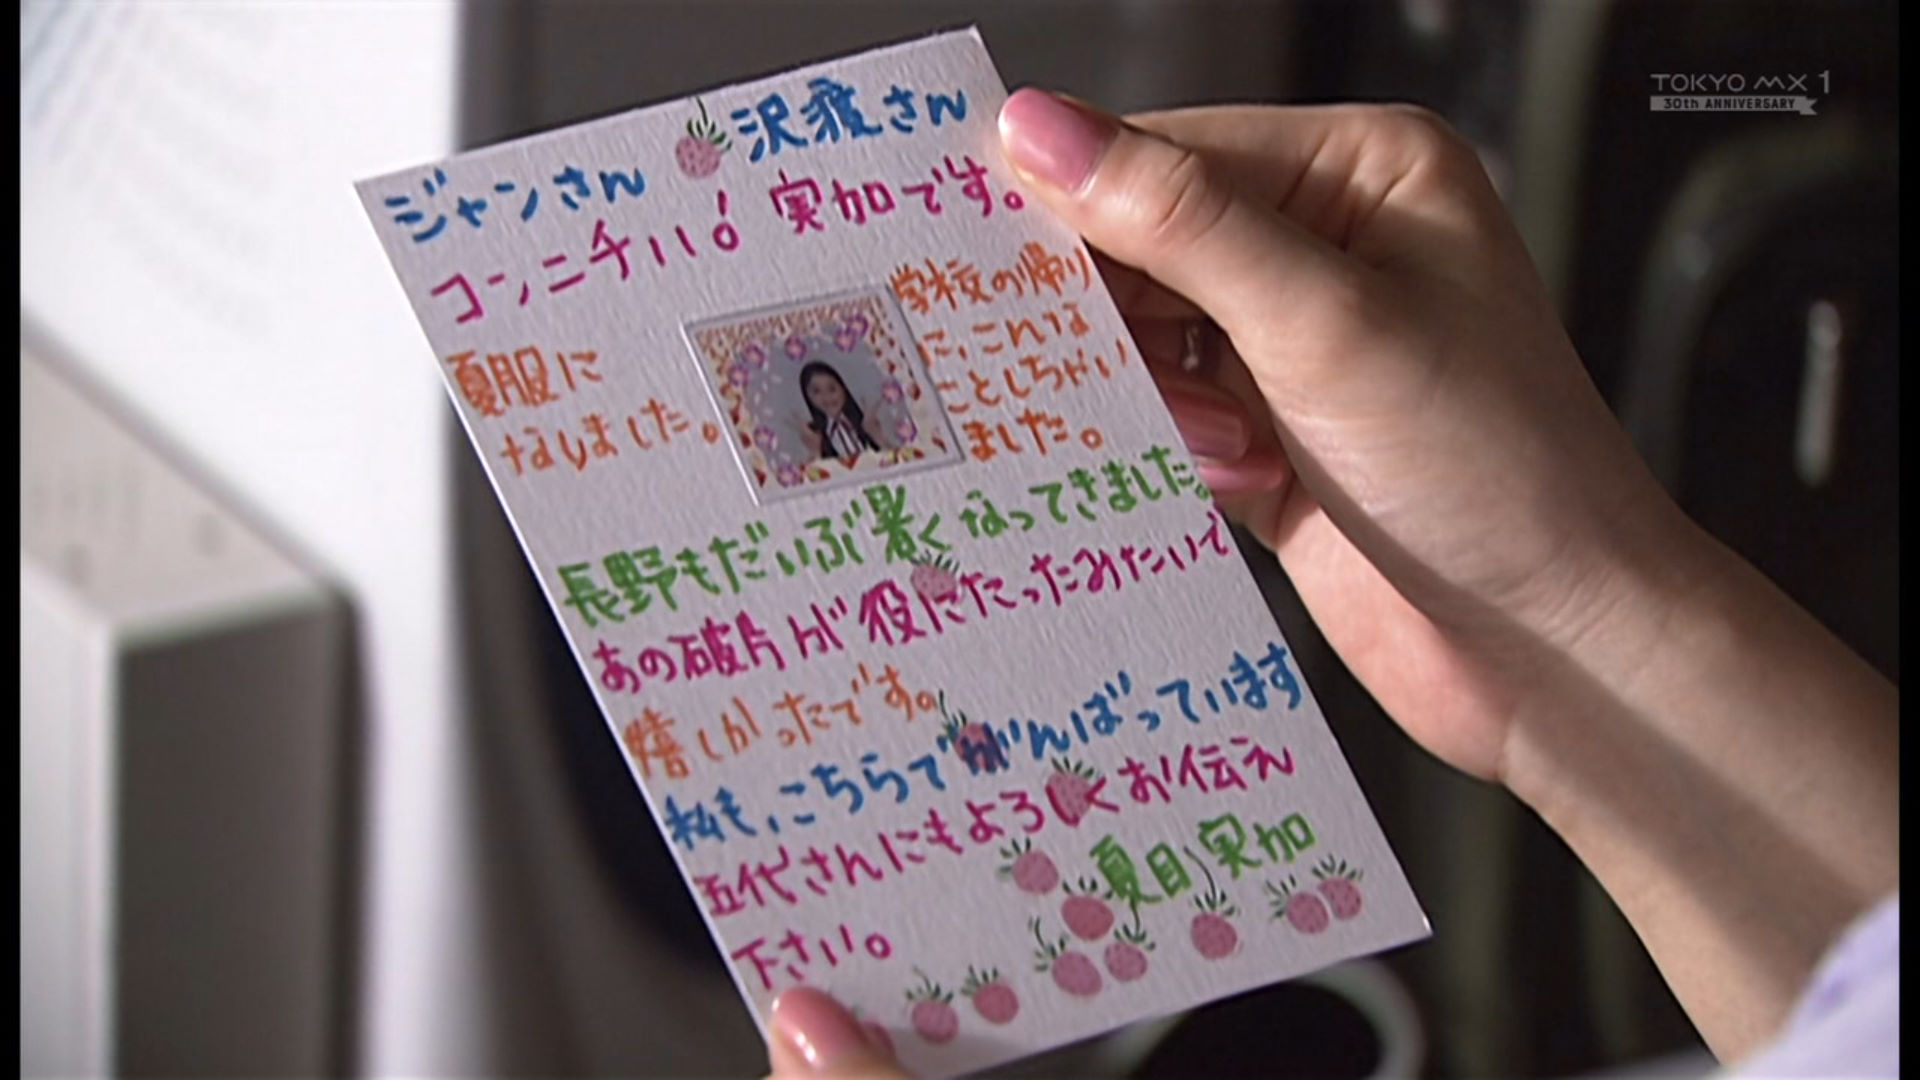 ジャンさん 沢渡さん
コンニチハ! 実加です。
夏服に
なりました。
学校の帰り
に、こんな
ことしちゃい
ました。
長野もだいぶ暑くなってきました。
あの破片が役にたったみたいで
嬉しかったです。
私も、こちらでがんばっています
五代さんにもよろしくお伝え
下さい。
夏目実加
TOKYO MX 1
30th ANNIVERSARY